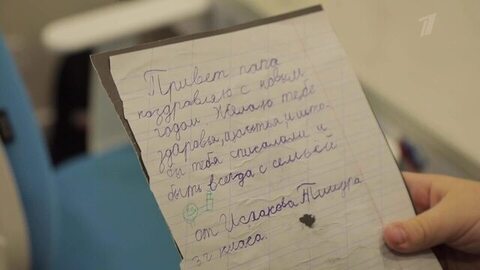 Привет папа
поздравляю с новым
годом. Желаю тебе
здаровья, щастья и што
бы тебя списалали и
быть всегда с семьёй
от Ислакова Тимура
3г класа.